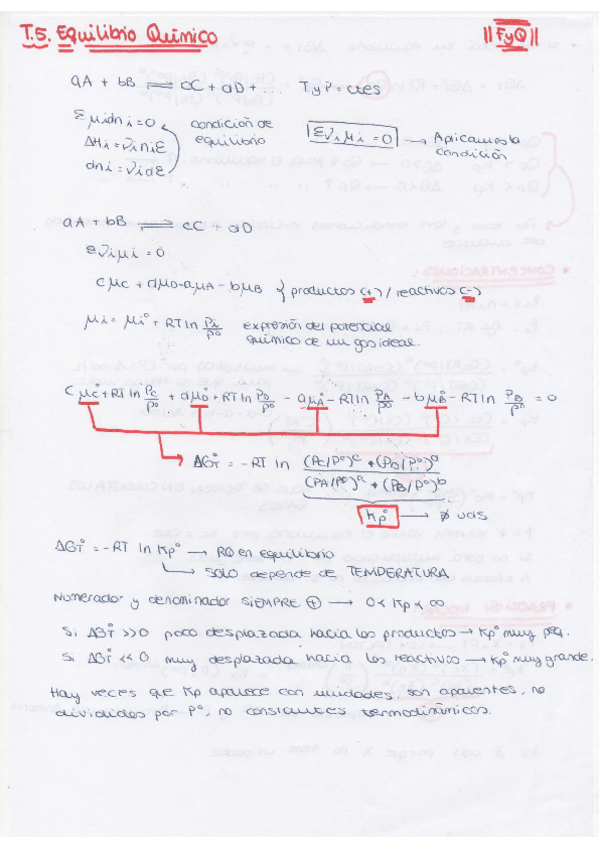 T.5. Equilibrio Químico
||FyQ||
aA + bB ⇌ cC + dD + ... T y P = ctes
Σμidni = 0
Δni = νiniε
dni = νidε
condición de equilibrio
Σνiμi = 0 → Aplicamos la condición
aA + bB ⇌ cC + dD
Σνiμi = 0
cμC + dμD - aμA - bμB { productos (+) / reactivos (-)
μi = μi° + RT ln Pi/P° expresión del potencial químico de un gas ideal.
cμC° + RT ln PC/P° + dμD° + RT ln PD/P° - aμA° - RT ln PA/P° - bμB° - RT ln PB/P° = 0
ΔGT° = -RT ln (PC/P°)^c * (PD/P°)^d / (PA/P°)^a * (PB/P°)^b
Kp° → ∅ uds
ΔGT° = -RT ln Kp° → RQ en equilibrio
→ SOLO depende de TEMPERATURA
Numerador y denominador SIEMPRE ⊕ → 0 < Kp < ∞
Si ΔGT° >> 0 poco desplazada hacia los productos → Kp° muy peq.
Si ΔGT° << 0 muy desplazada hacia los reactivos → Kp° muy grande.
Hay veces que Kp aparece con unidades, son aparentes, no
divididas por P°, no constantes termodinámicos.